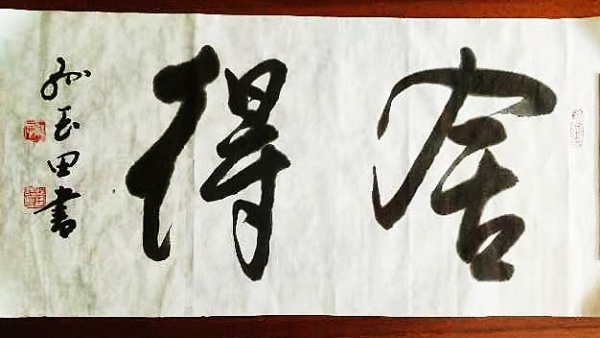 舍得
孙玉田书